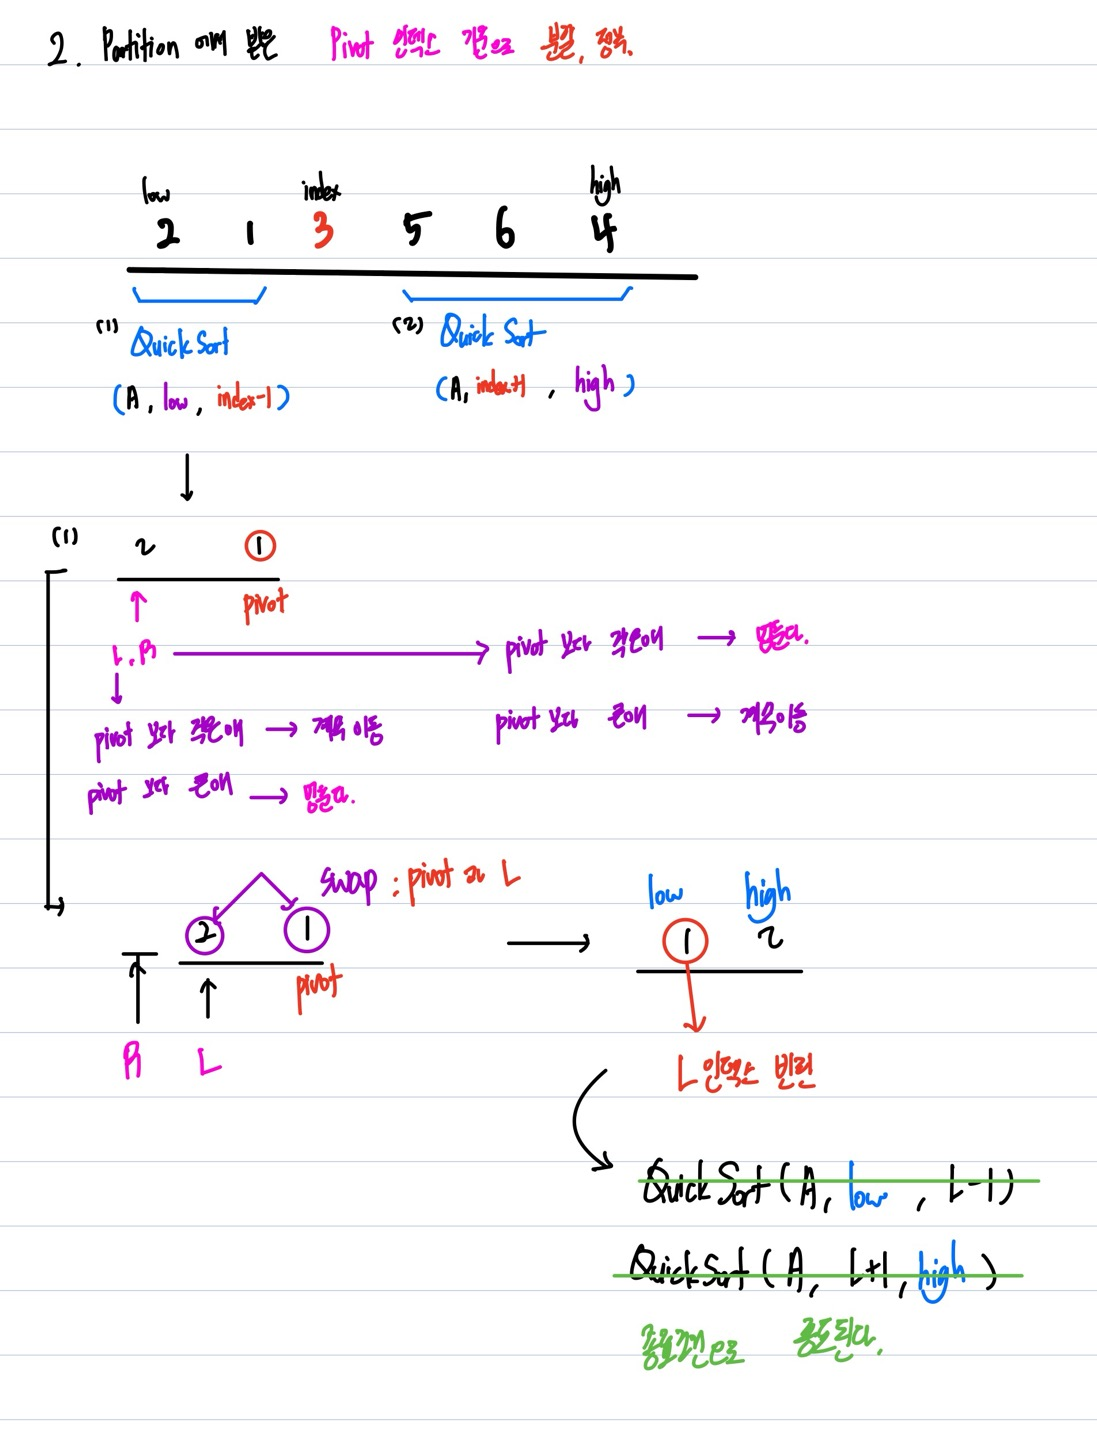 2. Partition 에서 받은 Pivot 인덱스 기준으로 분할, 정복.
low index high
2 1 3 5 6 4
(1) Quick Sort (2) Quick Sort
(A, low, index-1) (A, index+1, high)
(1) 2 1
pivot
L, R → pivot 보다 작은애 → 멈춘다.
pivot 보다 작은애 → 계속 이동 pivot 보다 큰애 → 계속이동
pivot 보다 큰애 → 멈춘다.
swap : pivot과 L low high
2 1 → 1 2
pivot
R L L인덱스 반환
QuickSort(A, low, L-1)
QuickSort(A, L+1, high)
종료조건으로 종료된다.